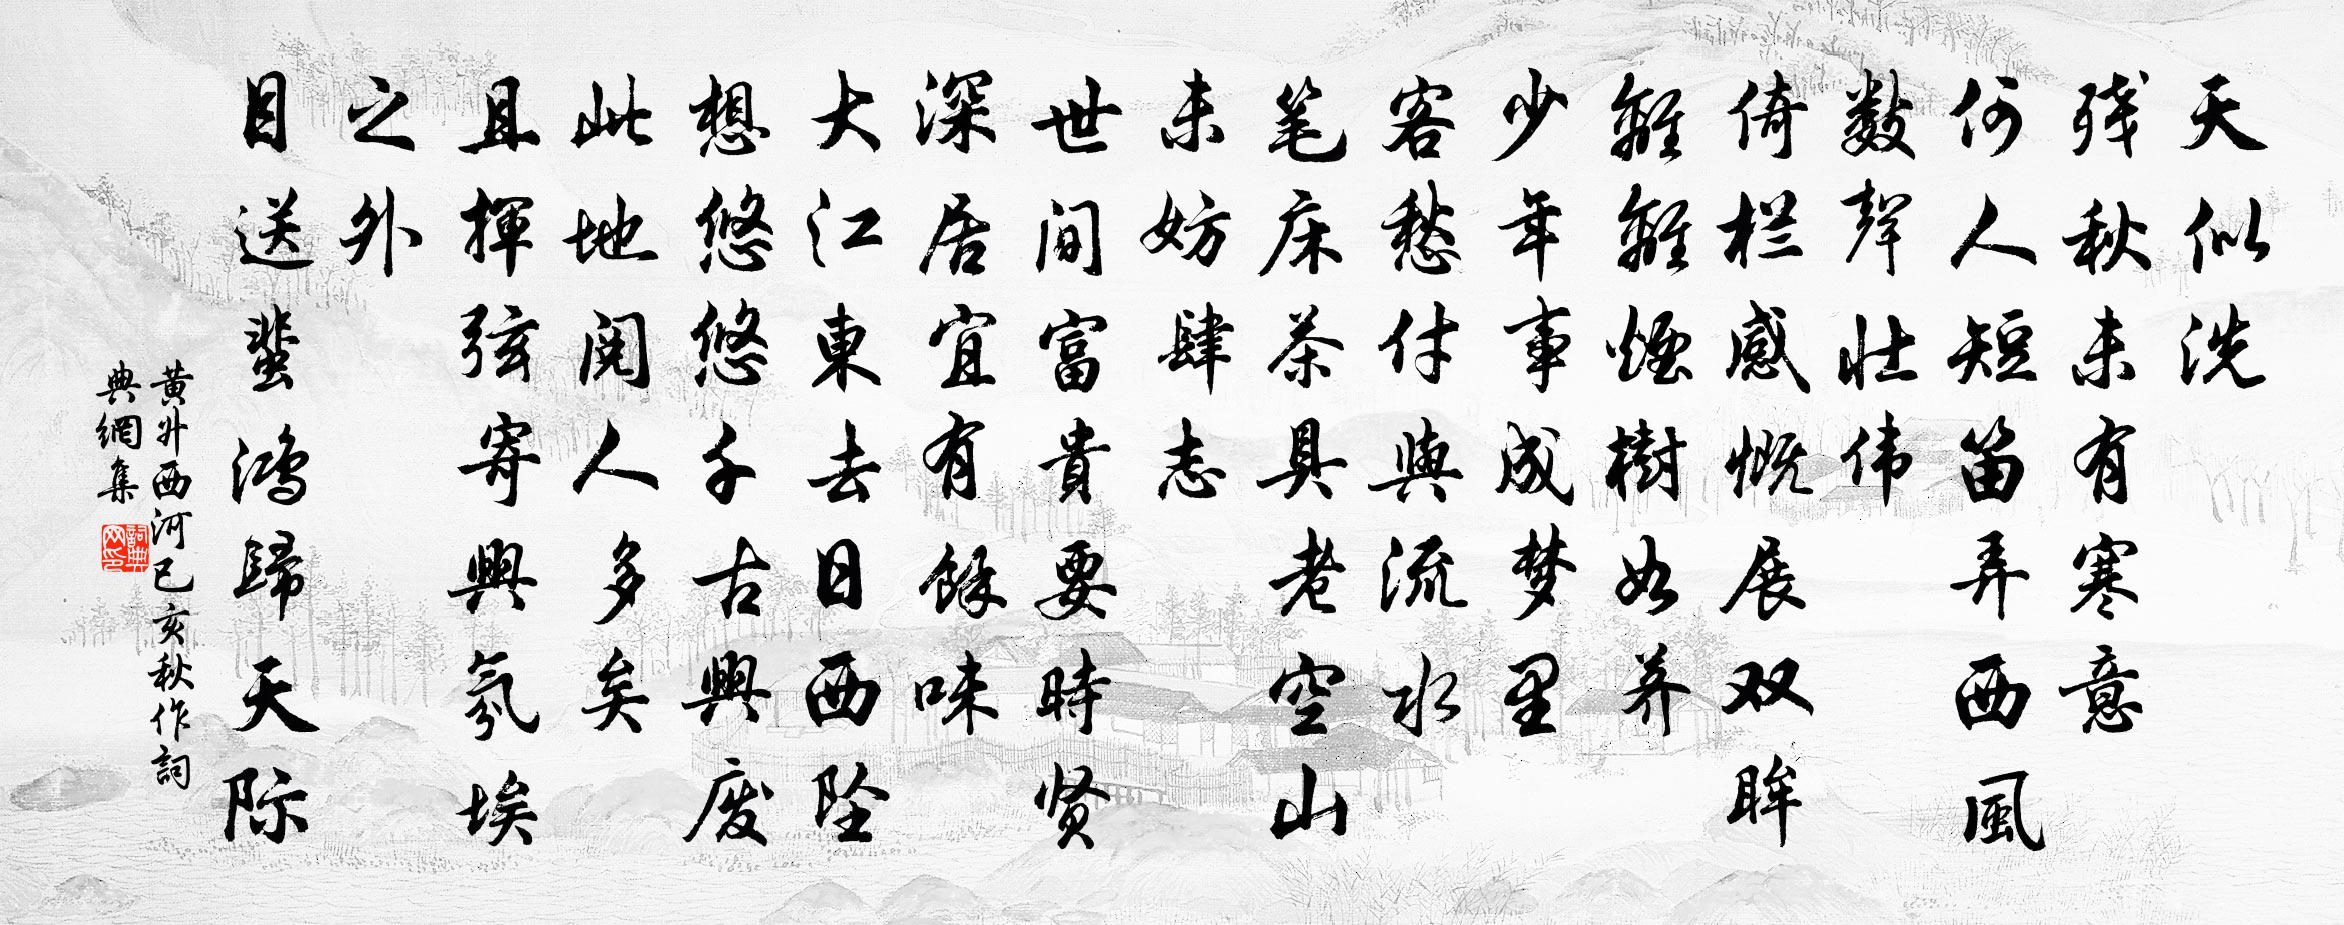 天似洗
残秋未有寒意
何人短笛弄西風
数聲壮伟
倚栏感慨展双眸
離離煙樹如荠
少年事成梦里
客愁付與流水
笔床茶具老空山
未妨肆志
世间富貴要時贤
深居宜有餘味
大江東去日西坠
想悠悠千古興废
此地阅人多矣
且揮弦寄興氛埃
之外
目送蜚鸿歸天际
黄升西河己亥秋作詞
典網集
詞典
网印